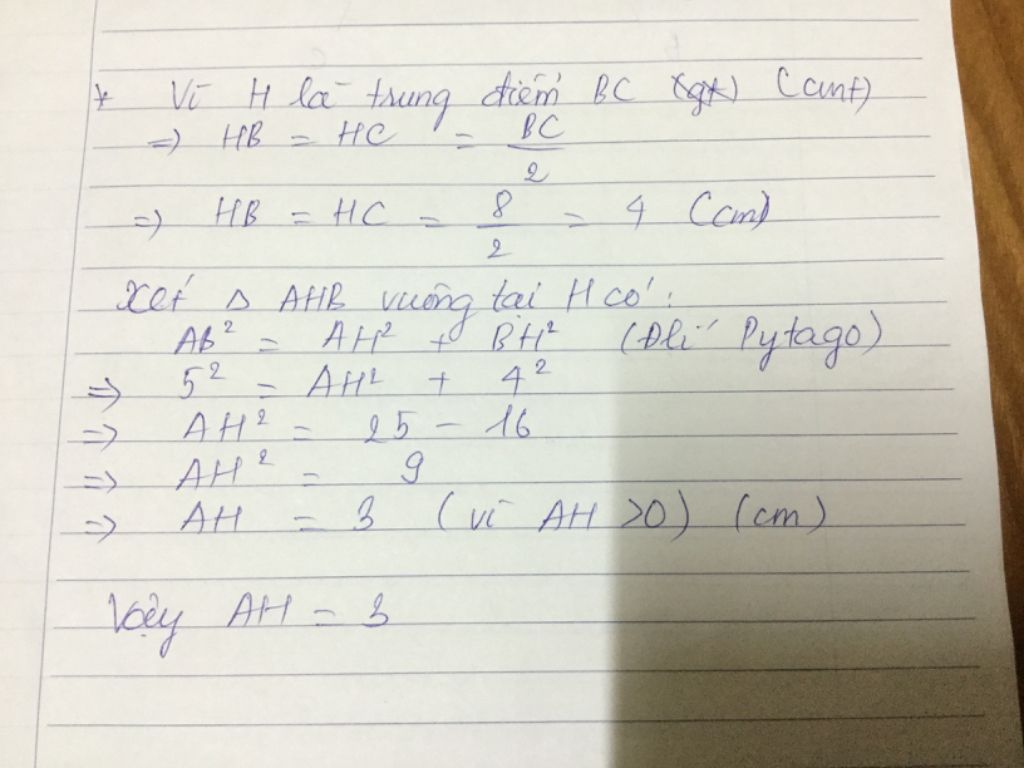 * Vì H là trung điểm BC (gt) (cmt)
=> HB = HC = BC/2
=> HB = HC = 8/2 = 4 (cm)
Xét Δ AHB vuông tại H có:
AB² = AH² + BH² (Đlí Pytago)
=> 5² = AH² + 4²
=> AH² = 25 - 16
=> AH² = 9
=> AH = 3 (vì AH >0) (cm)
Vậy AH = 3